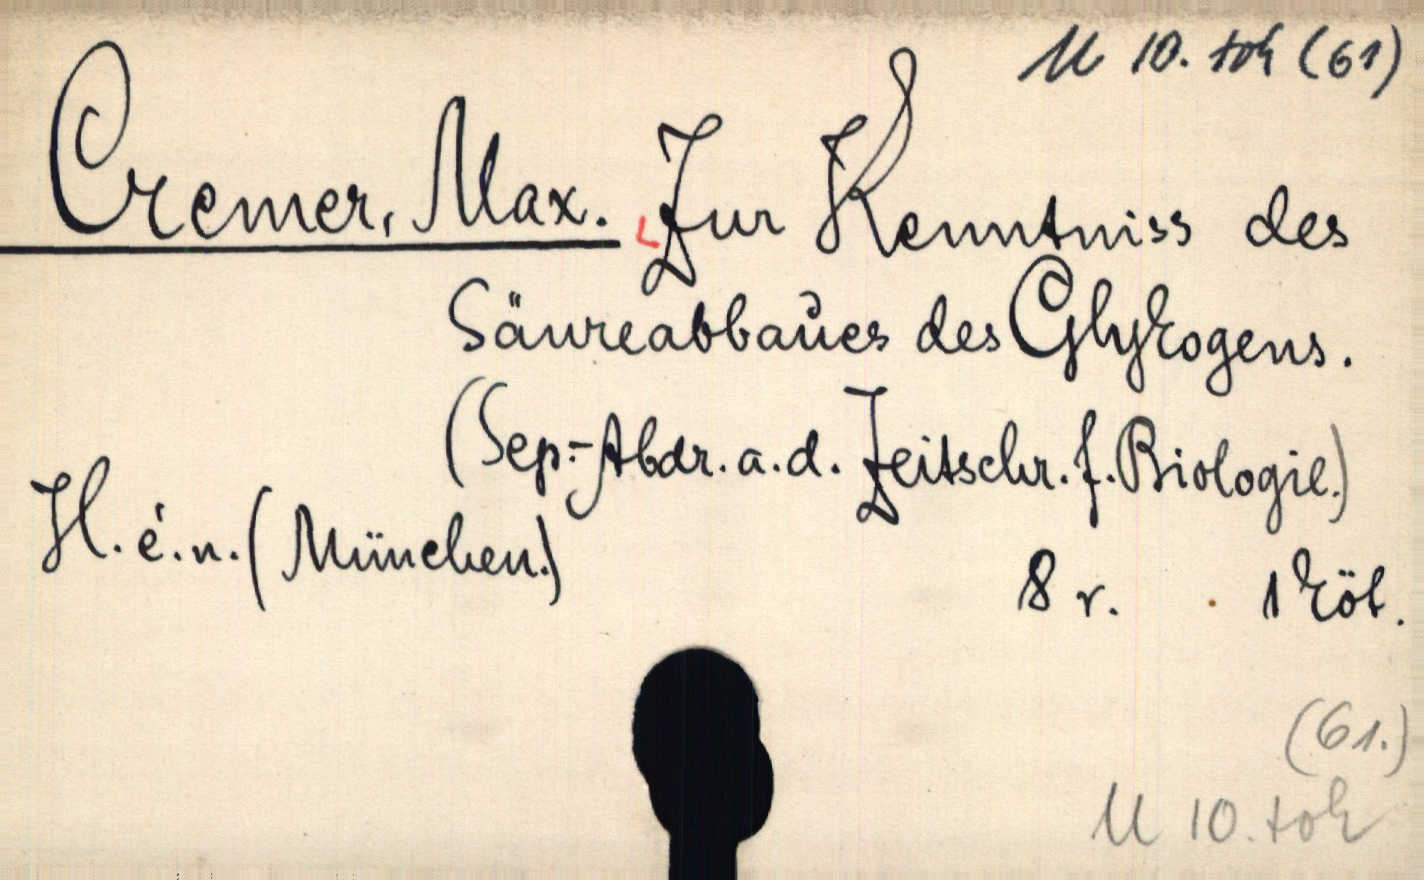 M 10. tok (61)
Cremer, Max. Zur Kenntniss des
Säureabbaues des Glykogens.
(Sep.-Abdr. a. d. Zeitschr. f. Biologie.)
H. é. n. (München.)
8 r. 1 köt.
(61.)
M 10. tok